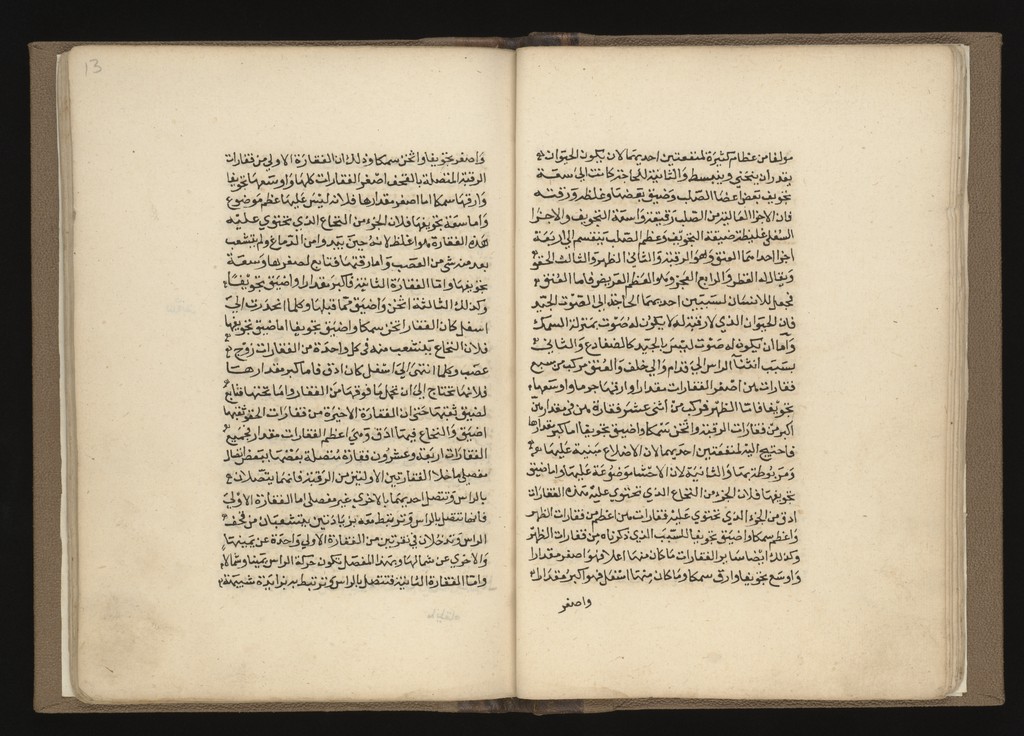 مولفا من عظام كثيرة لمنفعتين احديهما لان يكون الحيوان
يقدر ان ينحني وينبسط والثانية للحاجة كانت الى سعة
تجويف بعض اعضا الصلب وضيق بعضها وغلظه ورقته
فان الاجزا العالية من الصلب رقيقة واسعة التجويف والاجزا
السفلى غليظة ضيقة التجويف وعظم الصلب ينقسم الى اربعة
اجزا احدهما العنق وهو الرقبة والثاني الظهر والثالث الحقو
ويقال له القطن والرابع العجز وهو العظم العريض فاما العنق
فجعل للانسان لسببين احديهما الحاجة الى الصوت الجيد
فان الحيوان الذي لا رقبة له لا يكون له صوت بمنزلة السمك
واما ان يكون له صوت ليس بالجيد كالضفادع والثاني
بسبب انثناء الراس الى قدام والى خلف والعنق مركب من سبع
فقارات هن اصغر الفقارات مقدارا وارقها جرما واوسعها
تجويفا فاما الظهر فمركب من اثنى عشر فقارة هن في مقدارهن
اكبر من فقارات الرقبة واثخن سمكا واضيق تجويفا اما كبر مقدارها
فاحتيج اليه لمنفعتين احديهما لان الاضلاع مبنية عليها
ومربوطة بها والثانية لان الاحشا موضوعة عليها واما ضيق
تجويفها فلان الجزء من النخاع الذي تحتوي عليه هذه الفقارات
ادق من الجزء الذي تحتوي عليه فقارات هن اعظم من فقارات الظهر
واعظم سمكا واضيق تجويفا للسبب الذي ذكرناه من فقارات الظهر
وكذلك ايضا ساير الفقارات ما كان منها اعلا فهو اصغر مقدارا
واوسع تجويفا وارق سمكا وما كان منها اسفل فهو اكبر مقدارا
واصغر
13
واصغر تجويفا واثخن سمكا وذلك ان الفقارة الاولى من فقارات
الرقبة المتصلة بالقحف اصغر الفقارات كلها واوسعها تجويفا
وارقها سمكا اما اصغر مقدارها فلانه ليس عليها عظم موضوع
واما سعة تجويفها فلان الجزء من النخاع الذي تحتوي عليه
هذه الفقارة هو اغلظ لانه حين يبدو من الدماغ ولم يتشعب
بعد منه شي من العصب واما رقتها فتابع لصغرها وسعة
تجويفها واما الفقارة الثانية فاكبر مقدارا واضيق تجويفا
وكذلك الثالثة اثخن واضيق مما قبلها وكلما انحدرت الى
اسفل كان الفقار اثخن سمكا واضيق تجويفا اما ضيق تجويفها
فلان النخاع يتشعب منه في كل واحدة من الفقارات زوج
عصب وكلما انتهى الى اسفل كان ادق فاما كبر مقدارها
فلانها تحتاج الى ان تحمل ما فوقها من الفقار واما ثخنها فتابع
لضيق ثقبها حتى ان الفقارة الاخيرة من فقارات الحقو ثقبها
اضيق والنخاع فيها ادق وهي اعظم الفقارات مقدارا فجميع
الفقارات اربعة وعشرون فقارة متصلة بعضها ببعض اتصال
مفصلي ما خلا الفقارتين الاوليتين من الرقبة فانهما يتصلان
بالراس وتتصل احديهما بالاخرى غير مفصلي اما الفقارة الاولى
فانها تتصل بالراس وترتبط معه بزيادتين يتشعبان من قحف
الراس ويدخلان في نقرتين من الفقارة الاولى واحدة عن يمينها
والاخرى عن شمالها وبهذا المفصل تكون حركة الراس يمينا وشمالا
واما الفقارة الثانية فتتصل بالراس وترتبط به بزايدة شبيهة